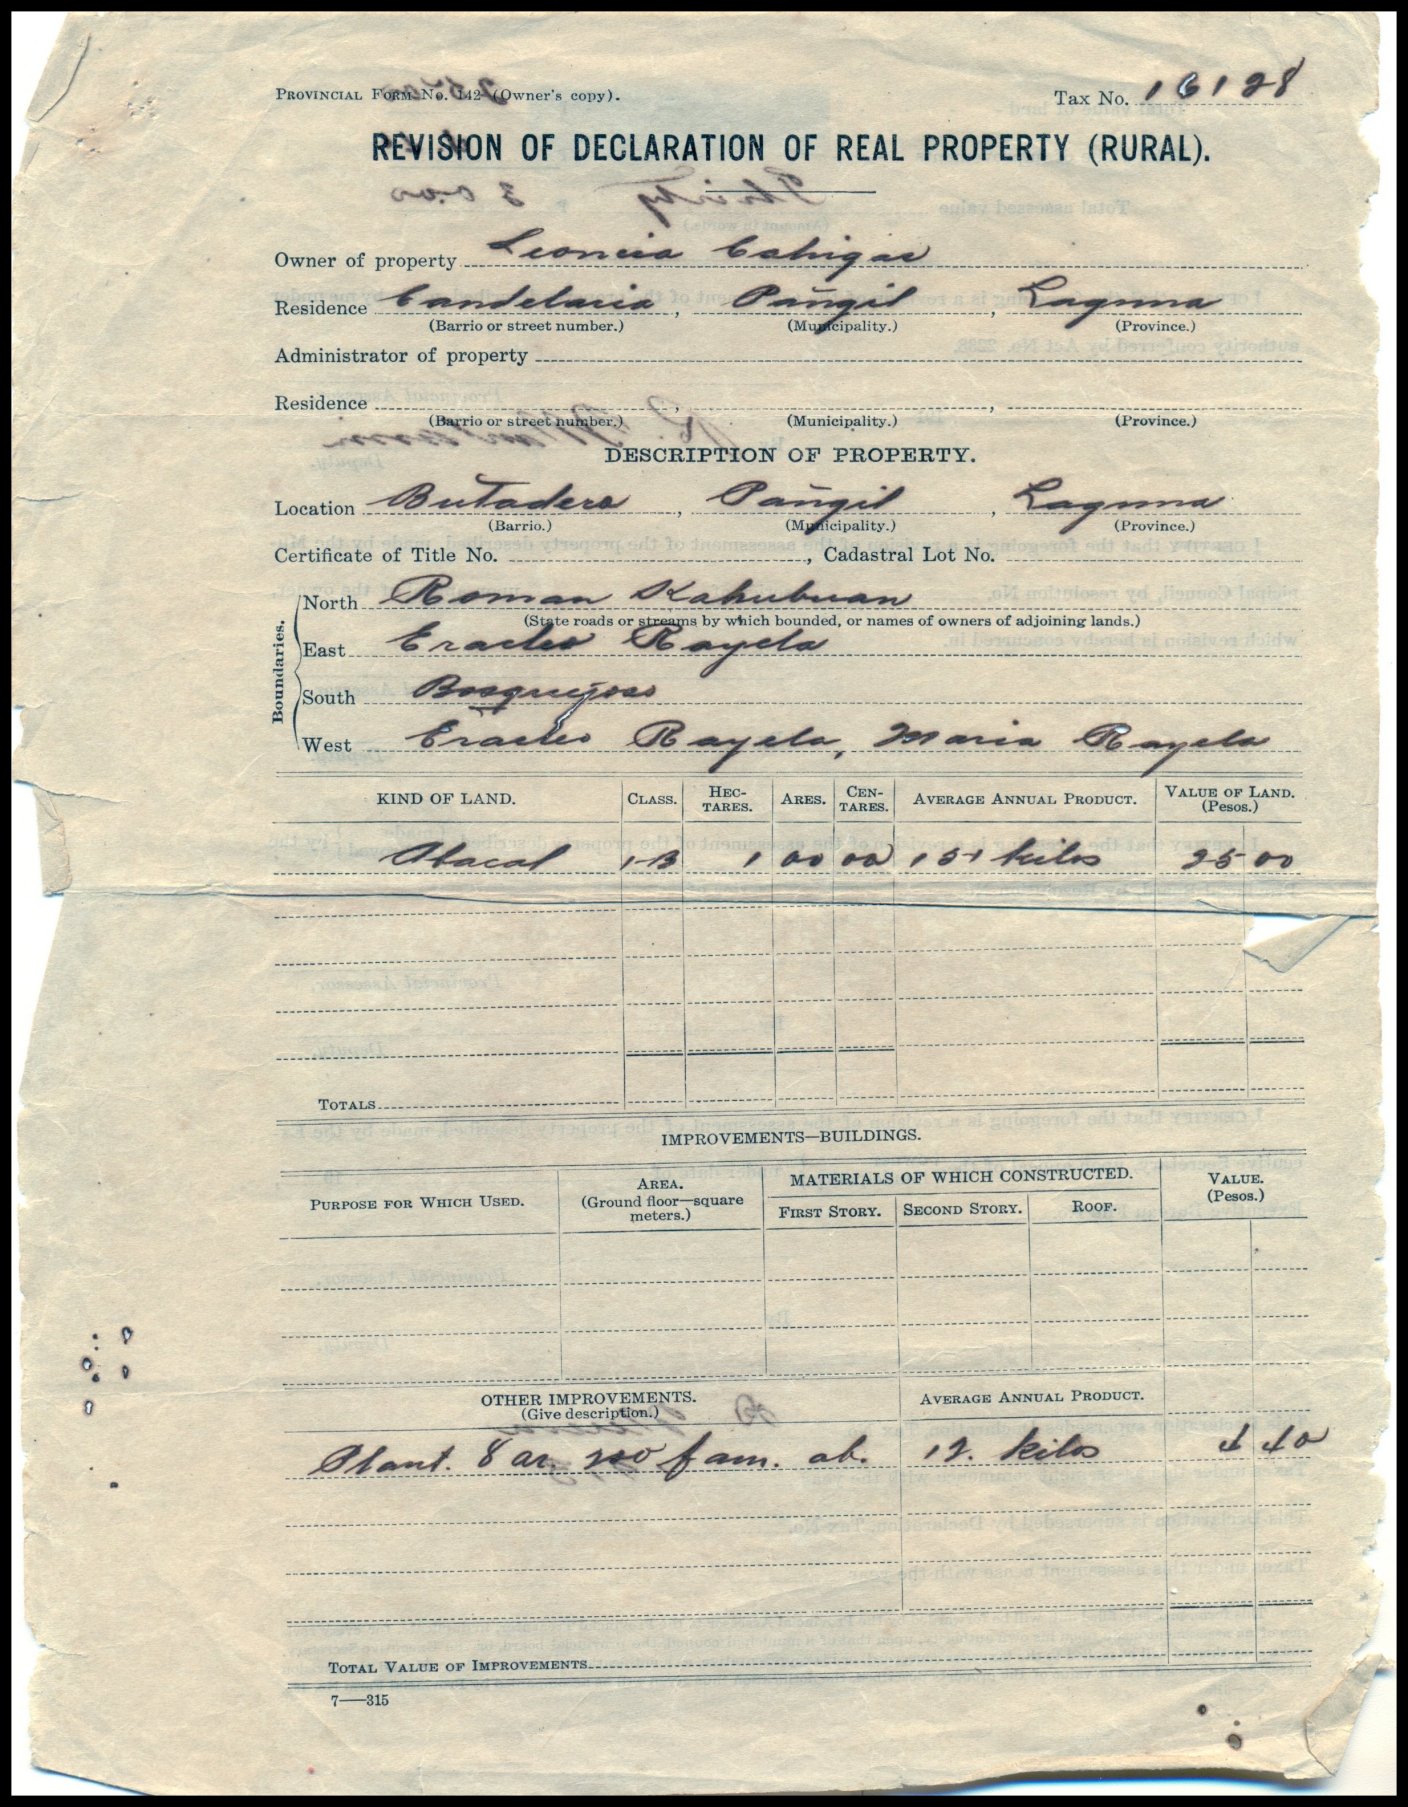 PROVINCIAL FORM No. 142 (Owner's copy).
Tax No. 16128
REVISION OF DECLARATION OF REAL PROPERTY (RURAL).
Owner of property Leoncia Cahigas
Residence Candelaria, Pañgil, Laguna
(Barrio or street number.) (Municipality.) (Province.)
Administrator of property
Residence
(Barrio or street number.) (Municipality.) (Province.)
DESCRIPTION OF PROPERTY.
Location Butadero, Pañgil, Laguna
(Barrio.) (Municipality.) (Province.)
Certificate of Title No. , Cadastral Lot No.
Boundaries.
North Roman Kahubuan
(State roads or streams by which bounded, or names of owners of adjoining lands.)
East Eracleo Rayela
South Bosquejoso
West Eracleo Rayela, Maria Rayela
KIND OF LAND. CLASS. HEC-TARES. ARES. CEN-TARES. AVERAGE ANNUAL PRODUCT. VALUE OF LAND. (Pesos.)
Abacal 1-B 1 00 00 151 kilos 25 00
TOTALS
IMPROVEMENTS—BUILDINGS.
PURPOSE FOR WHICH USED. AREA. (Ground floor—square meters.) MATERIALS OF WHICH CONSTRUCTED. VALUE. (Pesos.)
FIRST STORY. SECOND STORY. ROOF.
OTHER IMPROVEMENTS. AVERAGE ANNUAL PRODUCT.
(Give description.)
Plant. 8 ar. 200 fam. ab. 12. kilos 4 40
TOTAL VALUE OF IMPROVEMENTS
7—315